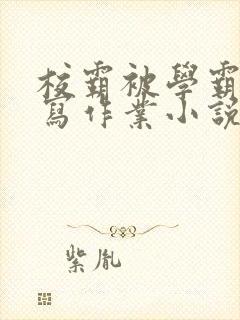 校霸被學霸
寫作業小說
紫胤